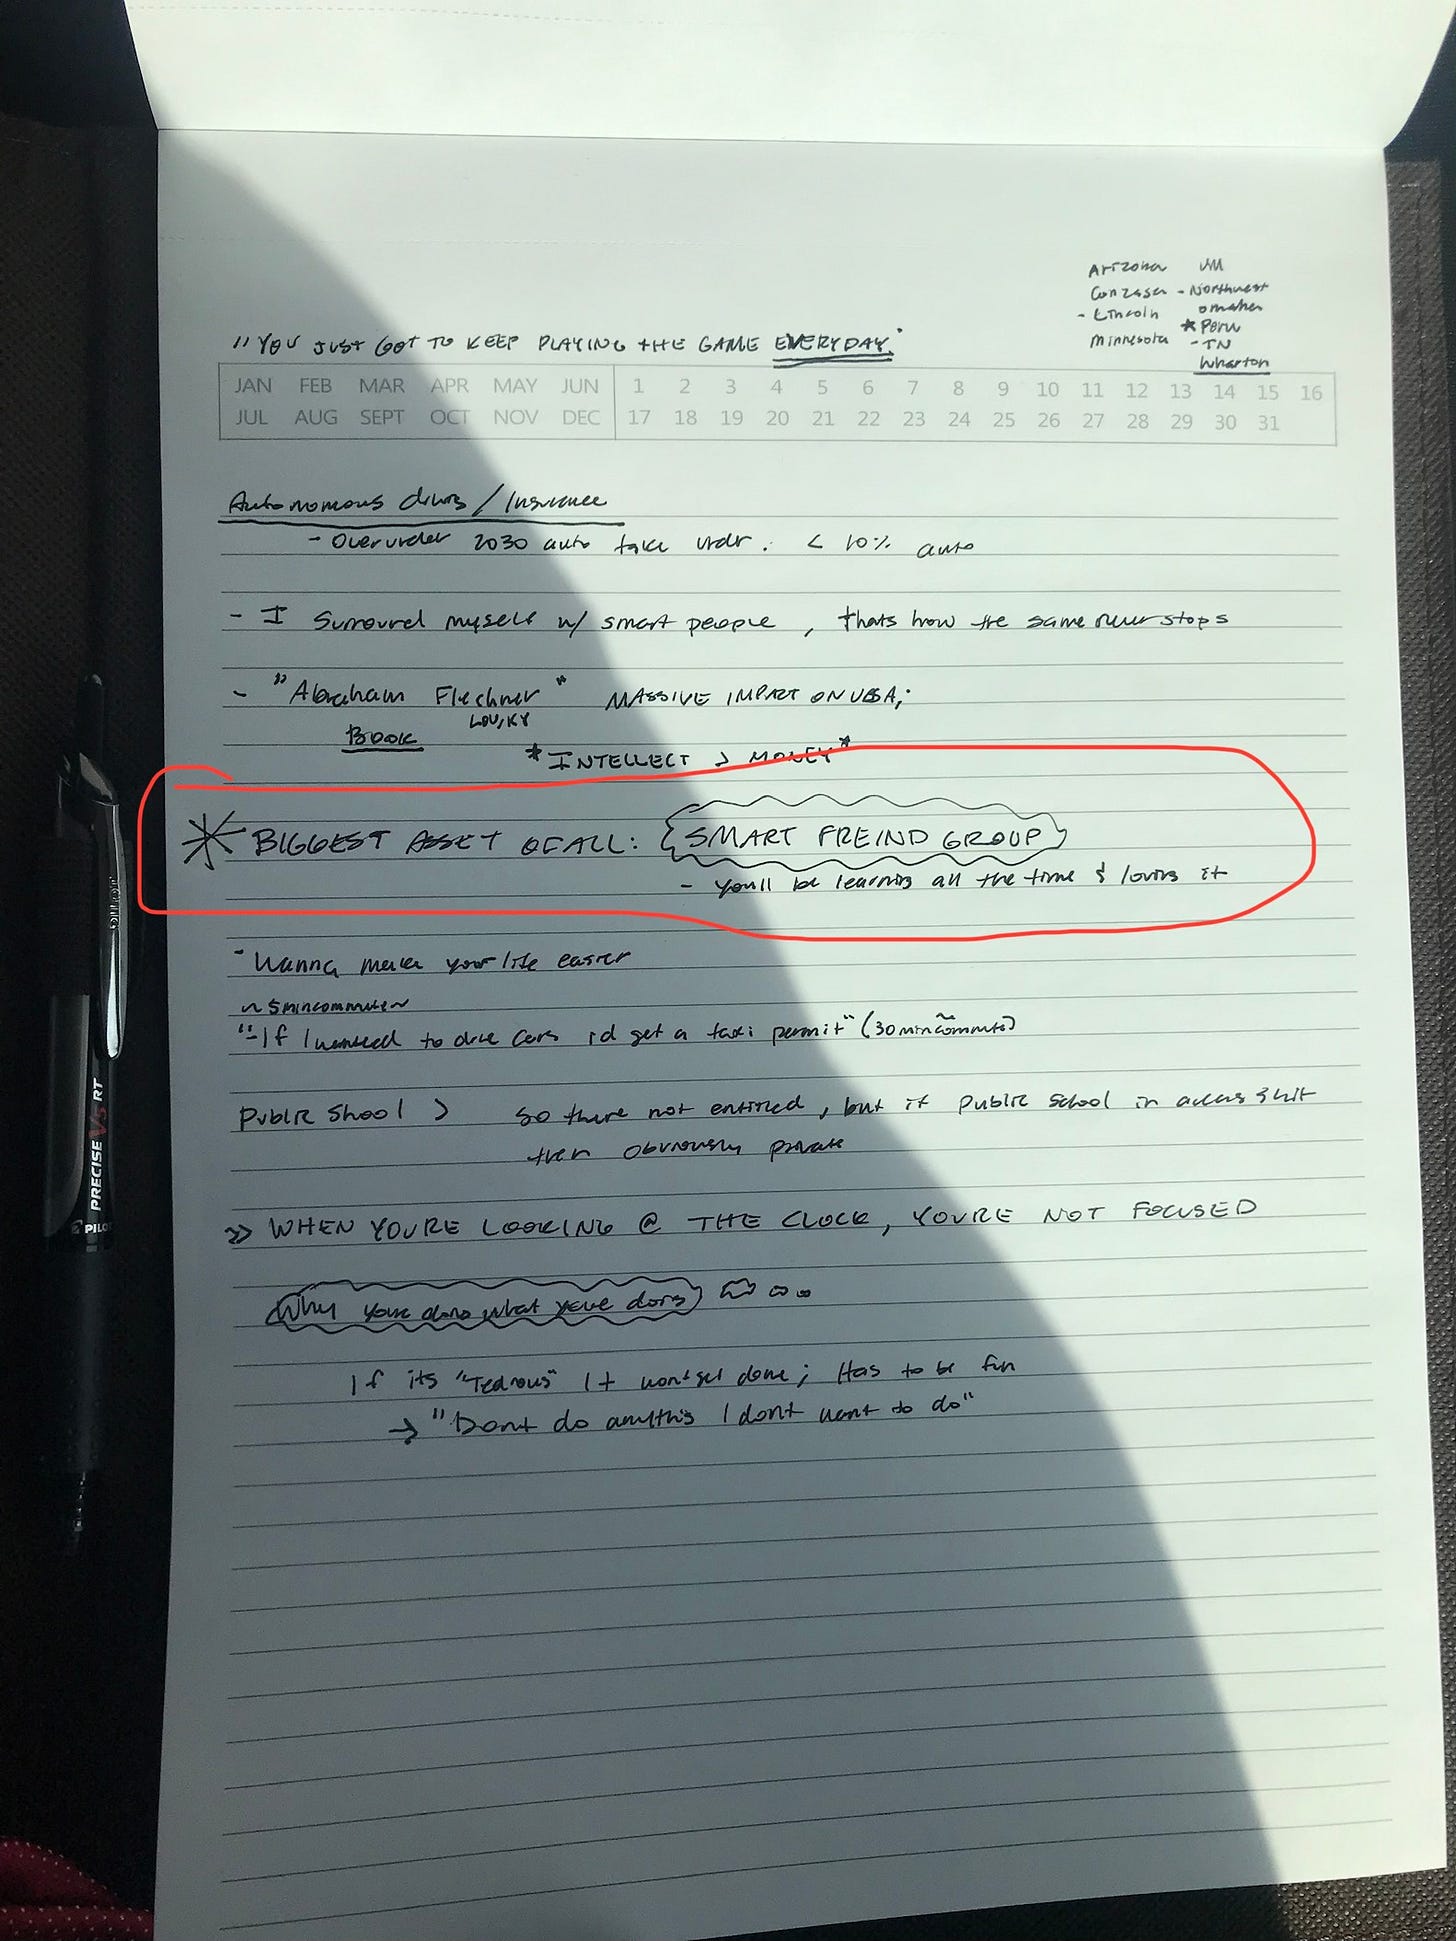 Arizona UM
Gonzaga - Northwest
- Lincoln omaha
Minnesota * Peru
- TN
Wharton
"YOU JUST GOT TO KEEP PLAYING THE GAME EVERYDAY."
JAN FEB MAR APR MAY JUN 1 2 3 4 5 6 7 8 9 10 11 12 13 14 15 16
JUL AUG SEPT OCT NOV DEC 17 18 19 20 21 22 23 24 25 26 27 28 29 30 31
Autonomous driving / Insurance
- Over under 2030 auto take . < 10% auto
- I surround myself w/ smart people, thats how the never stops
- "Abraham Flechner" MASSIVE IMPACT ON USA;
LOU, KY
BOOK
*INTELLECT > MONEY*
* BIGGEST ASSET OF ALL: SMART FREIND GROUP
- You'll be learning all the time & loving it
- Wanna make your life easier
~ 5 min commute ~
"- If I wanted to drive cars id get a taxi permit" (30 min commute)
Public Shool > So there not entitled, but if public school in area is shit
then obviously private
>> WHEN YOU'RE LOOKING @ THE CLOCK, YOU'RE NOT FOCUSED
Why youre doing what youre doing
If its "Tedious" It wont get done; Has to be fun
→ "Dont do anything I dont want to do"
PILOT
PRECISE V5 RT
PILOT